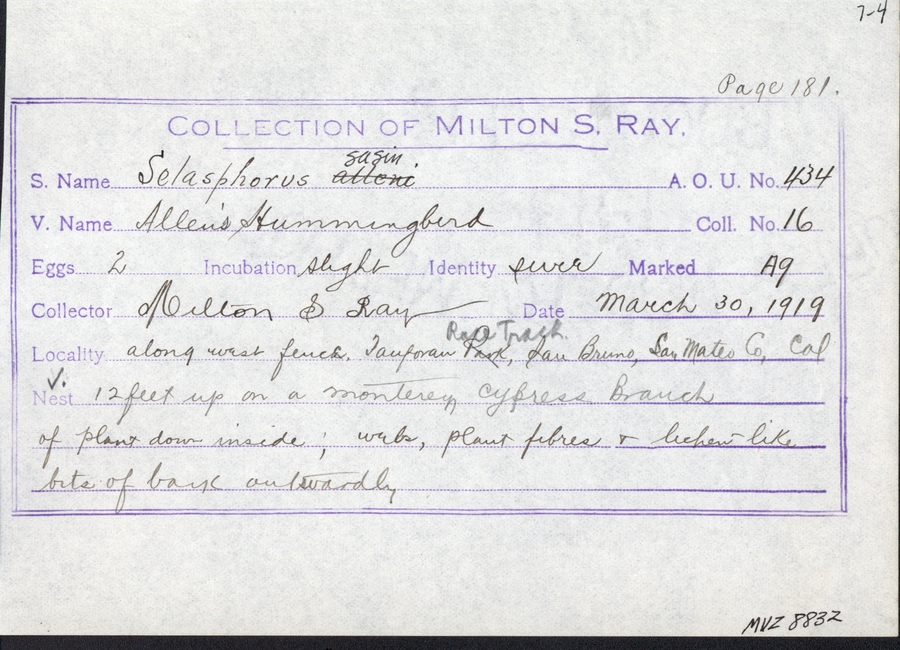 7-4
Page 181.
COLLECTION OF MILTON S. RAY.
sasin
S. Name Selasphorus alleni. A. O. U. No. 434
V. Name Allen's Hummingbird Coll. No. 16
Eggs 2 Incubation slight Identity sure Marked A9
Collector Milton S Ray Date March 30, 1919
Race Track
Locality along west fence, Tanforan Park, San Bruno, San Mateo Co, Cal
✓.
Nest 12 feet up on a monterey cypress Branch
of plant down inside; webs, plant fibres & lichen-like
bits of bark outwardly
MVZ 8832